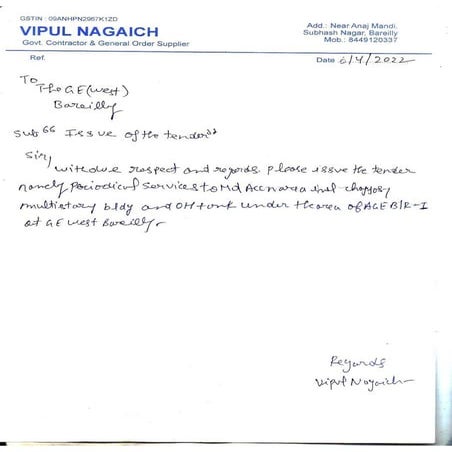 GSTIN : 09ANHPN2967K1ZD
VIPUL NAGAICH
Govt. Contractor & General Order Supplier
Add.: Near Anaj Mandi,
Subhash Nagar, Bareilly
Mob.: 8449120337
Ref.
Date 6/4/2022
To
The GE(west)
Bareilly
Sub Issue of the tender
Sir,
with due respect and regards please issue the tender
namely Periodical Services to Md Accn area
multistory bldg and OH tank under the area of AGE B/R-I
at GE west Bareilly
Regards
Vipul Nagaich